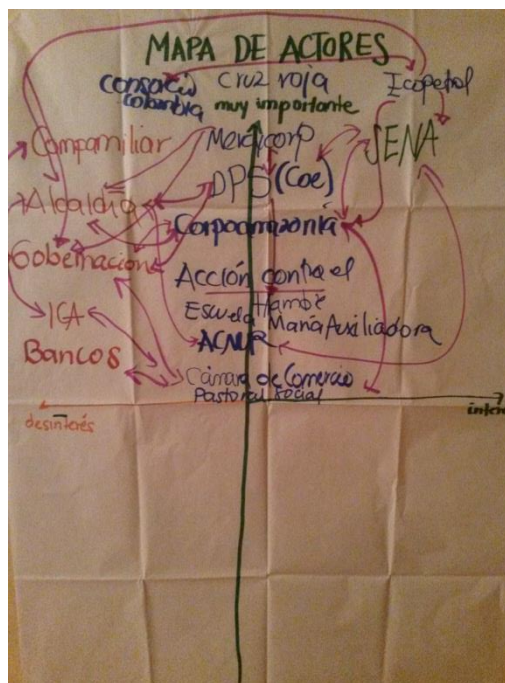 MAPA DE ACTORES
Consorcio Cruz roja Ecopetrol
Colombia muy importante
Comfamiliar Mercicorp SENA
Alcaldia DPS (Coe)
Corpoamazonía
Gobernacion Acción contra el
Hambre
ICA Escuela María Auxiliadora
Bancos ACNUR
Cámara de Comercio
Pastoral Social
desinterés inter